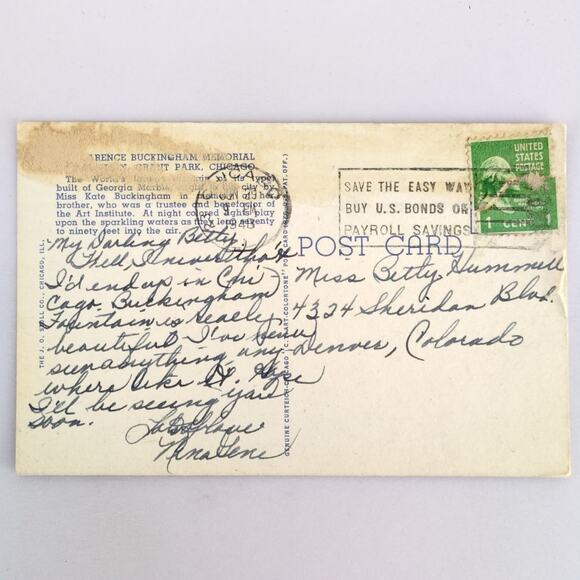 ARENCE BUCKINGHAM MEMORIAL
GRANT PARK, CHICAGO
The World's of its type,
built of Georgia Marble, the city by
Miss Kate Buckingham in of her
brother, who was a trustee and benefactor of
the Art Institute. At night colored lights play
upon the sparkling waters as they leap seventy
to ninety feet into the air.
My Darling Betty,
Well, I never thot
I'd end up in Chi-
cago. Buckingham
Fountain is really
beautiful. I've never
seen anything any
where like it. Hope
I'll be seeing you
soon.
Lots Love
Nina Gene
THE J. O. STOLL CO., CHICAGO, ILL.
GENUINE CURTEICH-CHICAGO "C. T. ART-COLORTONE" POST CARD (REG. U. S. PAT. OFF.)
CHICAGO
SAVE THE EASY WAY
BUY U.S. BONDS
PAYROLL SAVINGS
UNITED
STATES
POSTAGE
1 CENT 1
POST CARD
Miss Betty Hummell
4324 Sheridan Blvd.
Denver, Colorado